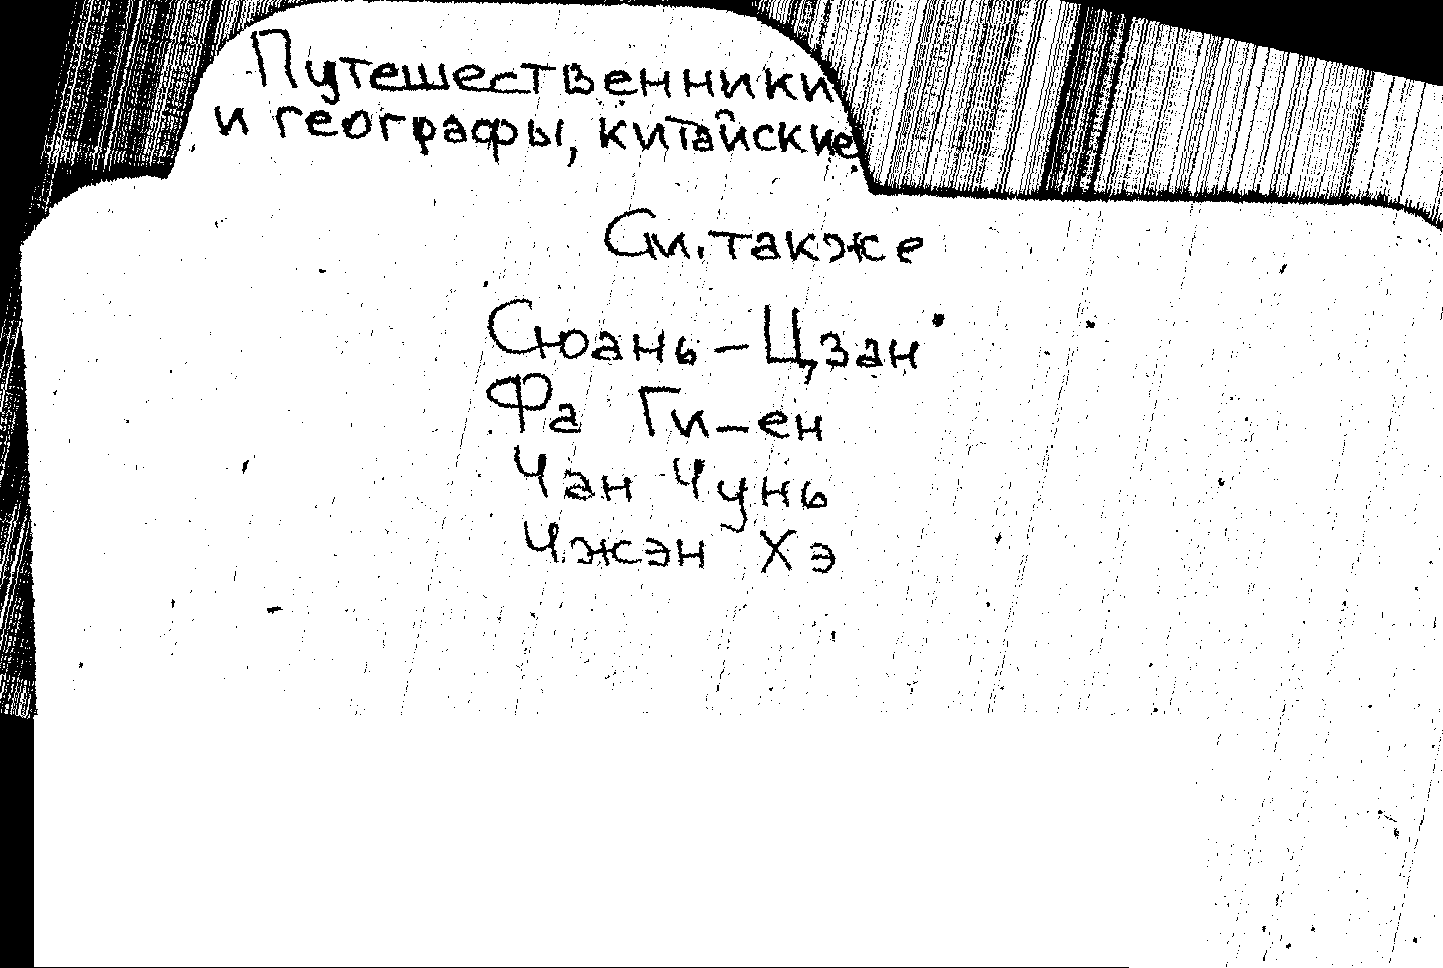 Путешественники
и географы, китайские
См. также
Сюань-Цзан
Фа Ги-ен
Чан Чунь
Чжэн Хэ